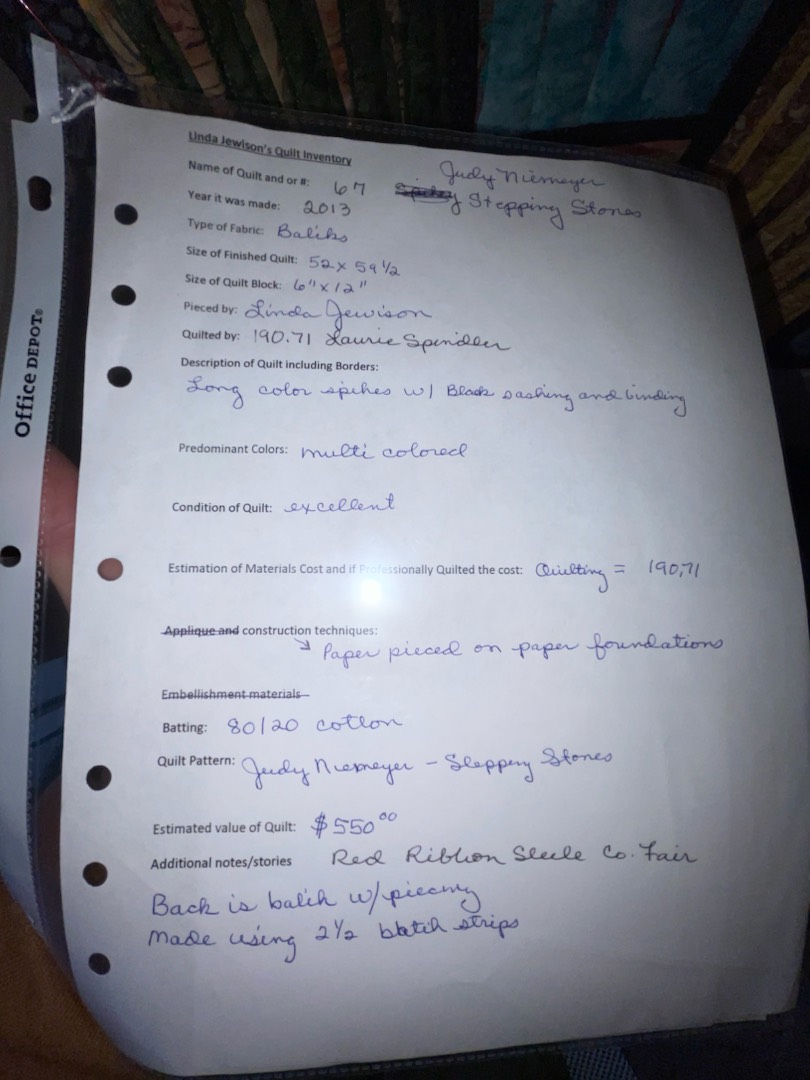 Office DEPOT®
Linda Jewison's Quilt Inventory
Name of Quilt and or #: 67 Judy Niemeyer
Stepping Stones
Year it was made: 2013
Type of Fabric: Batiks
Size of Finished Quilt: 52 x 59 1/2
Size of Quilt Block: 6" x 12"
Pieced by: Linda Jewison
Quilted by: 190.71 Laurie Spindler
Description of Quilt including Borders:
Long color spikes w/ Black sashing and binding
Predominant Colors: multi colored
Condition of Quilt: excellent
Estimation of Materials Cost and if Professionally Quilted the cost: Quilting = 190.71
Applique and construction techniques:
Paper pieced on paper foundations
Embellishment materials
Batting: 80/20 cotton
Quilt Pattern: Judy Niemeyer - Stepping Stones
Estimated value of Quilt: $550 00
Additional notes/stories Red Ribbon Steele Co. Fair
Back is batik w/ piecing
Made using 2 1/2 batik strips